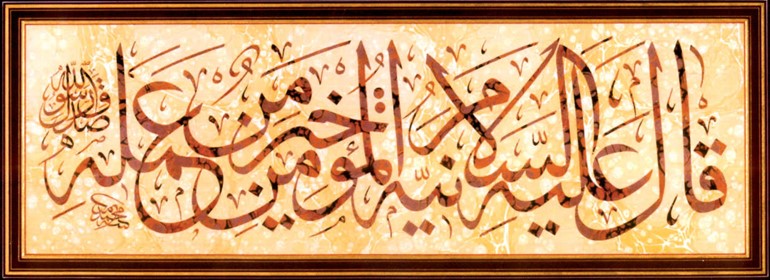 قال عليه السلام نية المؤمن خير من عمله
صدق رسول الله